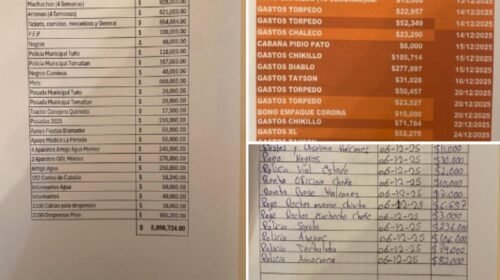 Muchachos (4 Semanas) $ 928,000.00
Antenas (4 Semanas) $ 621,000.00
Tickets, corridas, mecanicos y General $ 854,884.00
P.F.P $ 100,000.00
Negros $ 40,000.00
Policia Municipal Tuito $ 118,000.00
Policia Municipal Tomatlan $ 167,000.00
Negros Caminos $ 40,000.00
Mele $ 900,000.00
Posada Municipal Tuito $ 20,000.00
Posada Municipal Tomatlan $ 20,000.00
Tractor Conejero Quimixto $ 17,500.00
Posadas 2025 $ 210,000.00
Apoyo Fiestas Bramador $ 50,000.00
Apoyo Medico La Peñita $ 50,000.00
4 Aparatos Amigo Agua Montes $ 240,000.00
2 Aparatos GDL Montes $ 276,000.00
Amigo Agua $ 250,000.00
182 Cortes de Cabello $ 18,240.00
Informantes Agua $ 60,000.00
Informantes $ 40,000.00
2100 Calcas para despensas $ 18,960.00
2100 Despensas Mele $ 960,200.00
$ 5,898,724.00
13/12/2025
GASTOS TORPEDO $22,957 14/12/2025
GASTOS TORPEDO $52,349 14/12/2025
GASTOS CHALECO $23,290 14/12/2025
CABAÑA PIDIO PATO $6,000 15/12/2025
GASTOS CHIKILLO $105,714 15/12/2025
GASTOS DIABLO $277,997 15/12/2025
GASTOS TAYSON $31,028 16/12/2025
GASTOS TORPEDO $50,457 20/12/2025
GASTOS TORPEDO $23,527 20/12/2025
BONO EMPAQUE CORONA $15,000 20/12/2025
GASTOS CHIKILLO $71,764 22/12/2025
GASTOS XL $52,275 24/12/2025
06-12-25 $1,000
Pago Negros 06-12-25 $30,000
Policia Vial Estado 06-12-25 $2,000
Renta Oficina Chefe 06-12-25 $10,000
Renta Base Halcones 06-12-25 $3,000
Pago Doctor mama chiwia 06-12-25 $9,657
Pago Doctor Muchacho Chefe 06-12-25 $3,000
Policia Sayula 06-12-25 $236,000
Policia Atoyac 06-12-25 $106,000
Policia Techaluta 06-12-25 $64,000
Policia Amacueca 06-12-25 $82,000